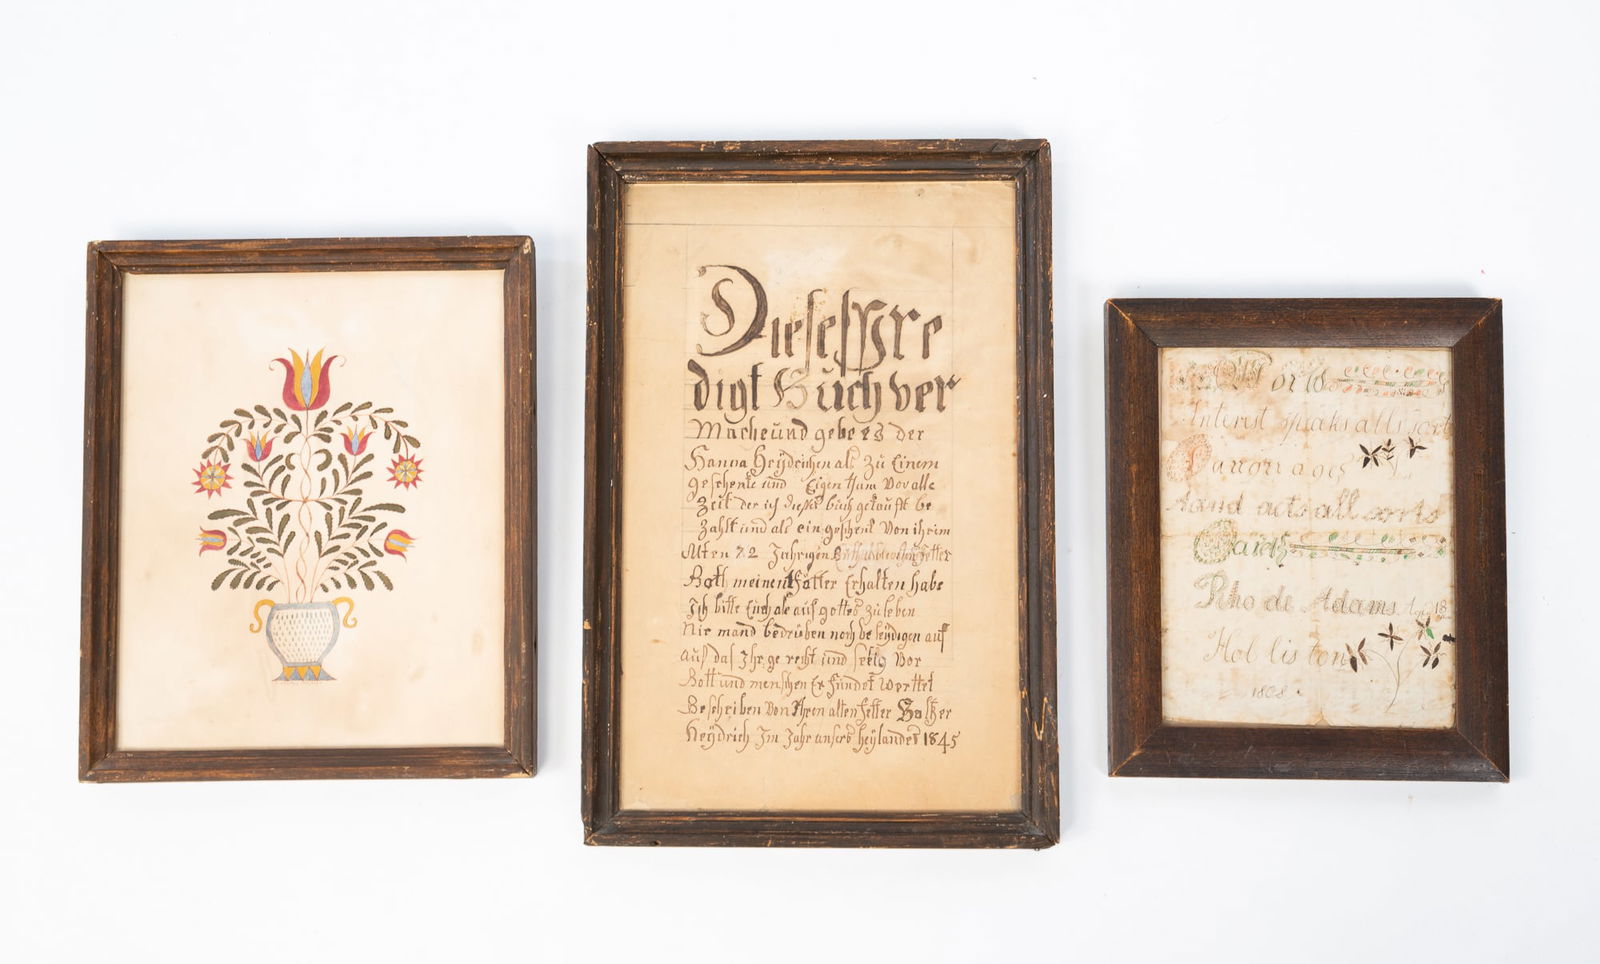 Dieses Pre
digt Buch ver
Mache und gebe es der
Hanna Heÿdrichen als Zu Einem
geschenke und Eigenthum Vor alle
Zeit der ich dieses buch gekauft be
Zahlt und als ein geschenk Von ihrem
Alten 72 Jahrigen
Gott meinen Vatter Erhalten habe
Ich bitte Euch ale auf gottes Zu leben
Nie mand bedrüben noch beleÿdigen auf
Auf das Ihr ge recht und seelig Vor
Gott und menschen Er fündet Werttet
Beschrieben Von Ihren alten fetter Balßer
Heÿdrich Im Jahr unsers heÿlandes 1845
or Wo
Interest speaks all sort
and acts all sorts
Rho de Adams Age 18
Hol lis ton
1808